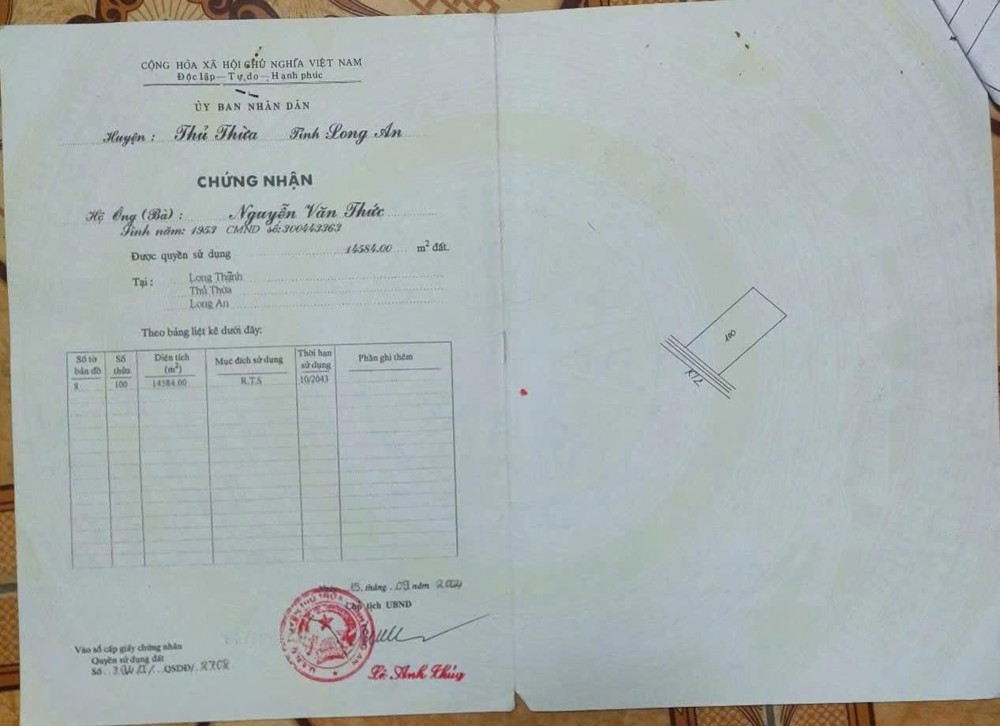 CỘNG HÒA XÃ HỘI CHỦ NGHĨA VIỆT NAM
Độc lập — Tự do — Hạnh phúc
ỦY BAN NHÂN DÂN
Huyện : Thủ Thừa Tỉnh Long An
CHỨNG NHẬN
Hộ Ông (Bà) : Nguyễn Văn Thức
Sinh năm: 1953 CMND số: 300443363
Được quyền sử dụng 14584.00 m² đất.
Tại : Long Thạnh
Thủ Thừa
Long An
Theo bảng liệt kê dưới đây:
Số tờ bản đồ Số thửa Diện tích (m²) Mục đích sử dụng Thời hạn sử dụng Phần ghi thêm
9 100 14584.00 R.T.S 10/2043
100
K72
15 tháng 09 năm 2004
Chủ tịch UBND
Lê Anh Thúy
Vào sổ cấp giấy chứng nhận
Quyền sử dụng đất
Số QSDĐ/